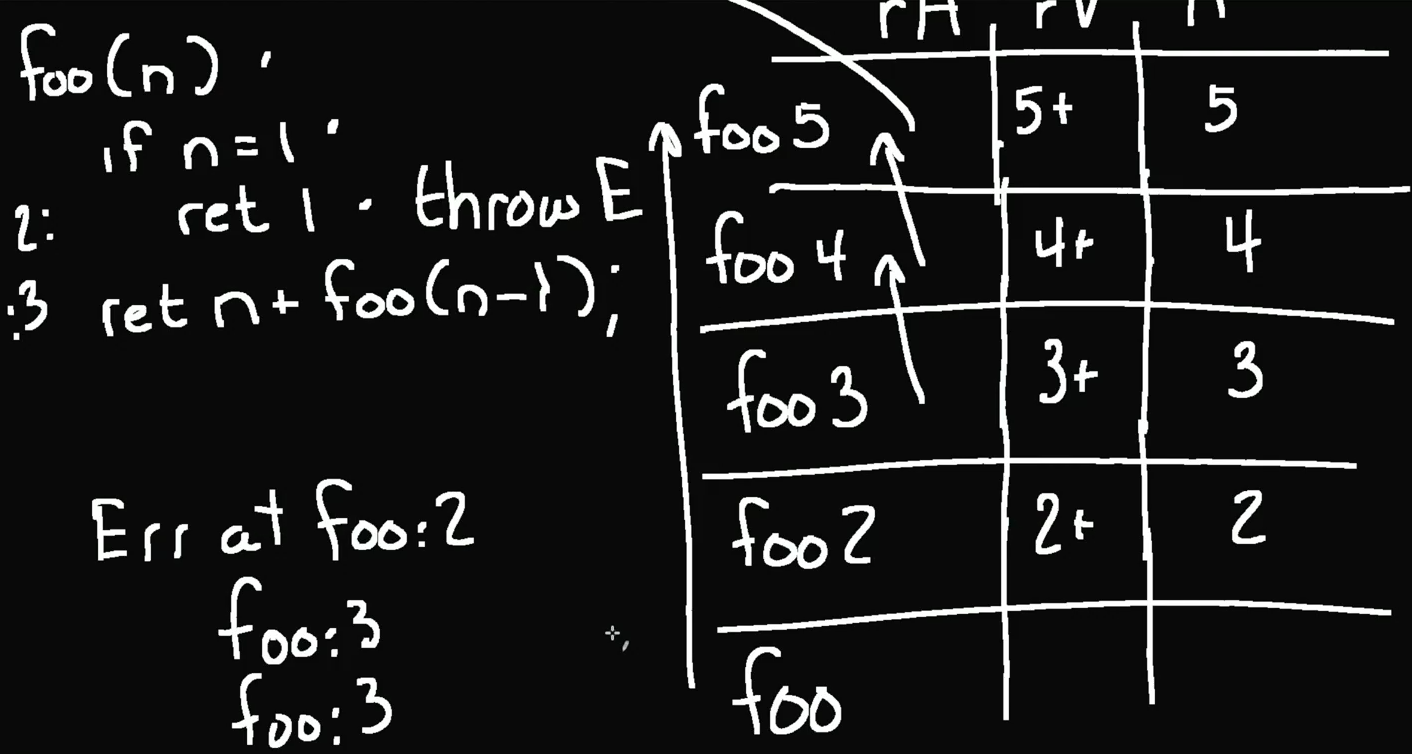 foo(n)
if n=1
2: ret 1 throw E
:3 ret n + foo(n-1);
Err at foo:2
foo:3
foo:3
rA rV
foo 5 5+ 5
foo 4 4+ 4
foo 3 3+ 3
foo 2 2+ 2
foo